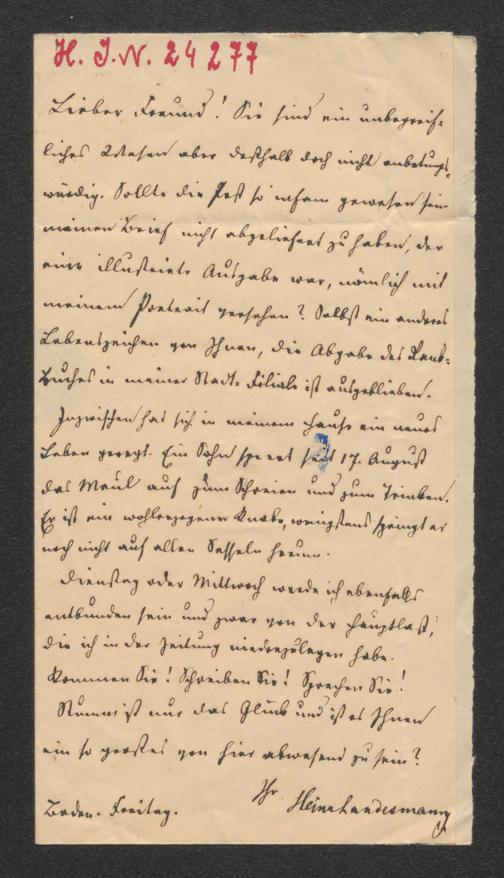 H. I. N. 24277
Lieber Freund! Sie sind ein unbegreif-
liches Wesen aber deßhalb doch nicht anbetungs-
würdig. Sollte die Post so infam gewesen sein
meinen Brief nicht abgeliefert zu haben, der
eine illustrirte Ausgabe war, nämlich mit
meinem Portrait versehen? Selbst ein anderes
Lebenszeichen von Ihnen, die Abgabe des
Buches in meiner Stadt-Filiale ist ausgeblieben.
Inzwischen hat sich in meinem Hause ein neues
Leben geregt. Ein Sohn sperrt seit 17. August
das Maul auf zum Schreien und zum Trinken.
Er ist ein wohlerzogener Knabe, wenigstens springt er
noch nicht auf allen Sesseln herum.
Dienstag oder Mittwoch werde ich ebenfalls
entbunden sein und zwar von der Hauptlast,
die ich in der Zeitung niederzulegen habe.
Kommen Sie! Schreiben Sie! Sprechen Sie!
Stumm ist nur das Glück und ist es Ihnen
ein so großes von hier abwesend zu sein?
Ihr
Heinr Landesmann
Baden. Freitag.